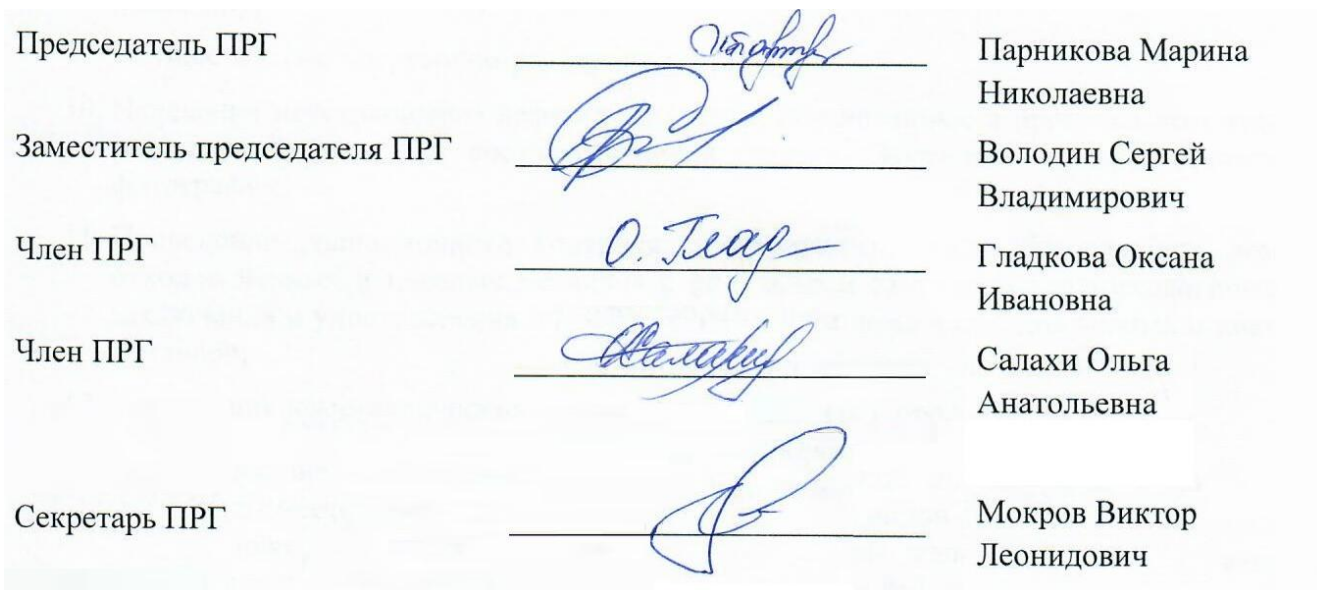 Председатель ПРГ
Парникова Марина
Николаевна
Заместитель председателя ПРГ
Володин Сергей
Владимирович
Член ПРГ
О. Глад
Гладкова Оксана
Ивановна
Член ПРГ
Салахи Ольга
Анатольевна
Секретарь ПРГ
Мокров Виктор
Леонидович